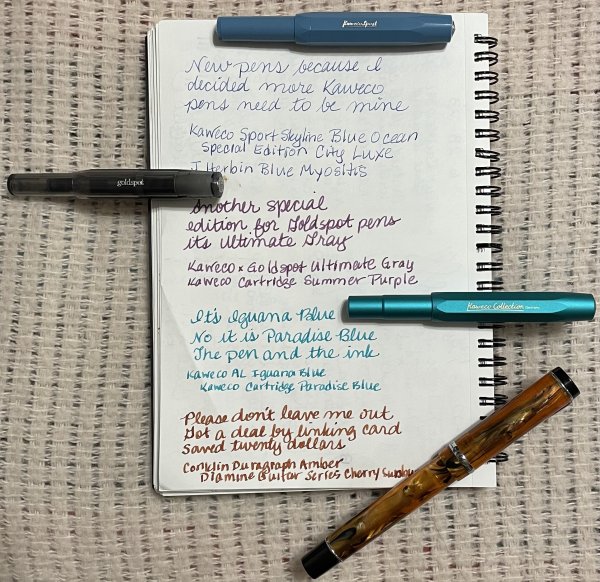 Kaweco Sport
New pens because I
decided more Kaweco
pens need to be mine
Kaweco Sport Skyline Blue Ocean
Special Edition City Luxe
J Herbin Blue Myositis
goldspot
Another special
edition for Goldspot pens
its Ultimate Gray
Kaweco x Goldspot Ultimate Gray
Kaweco Cartridge Summer Purple
Kaweco Collection
It's Iguana Blue
No it is Paradise Blue
The pen and the ink
Kaweco AL Iguana Blue
Kaweco Cartridge Paradise Blue
Please don't leave me out
Got a deal by linking card
Saved twenty dollars
Conklin Duragraph Amber
Diamine Guitar Series Cherry